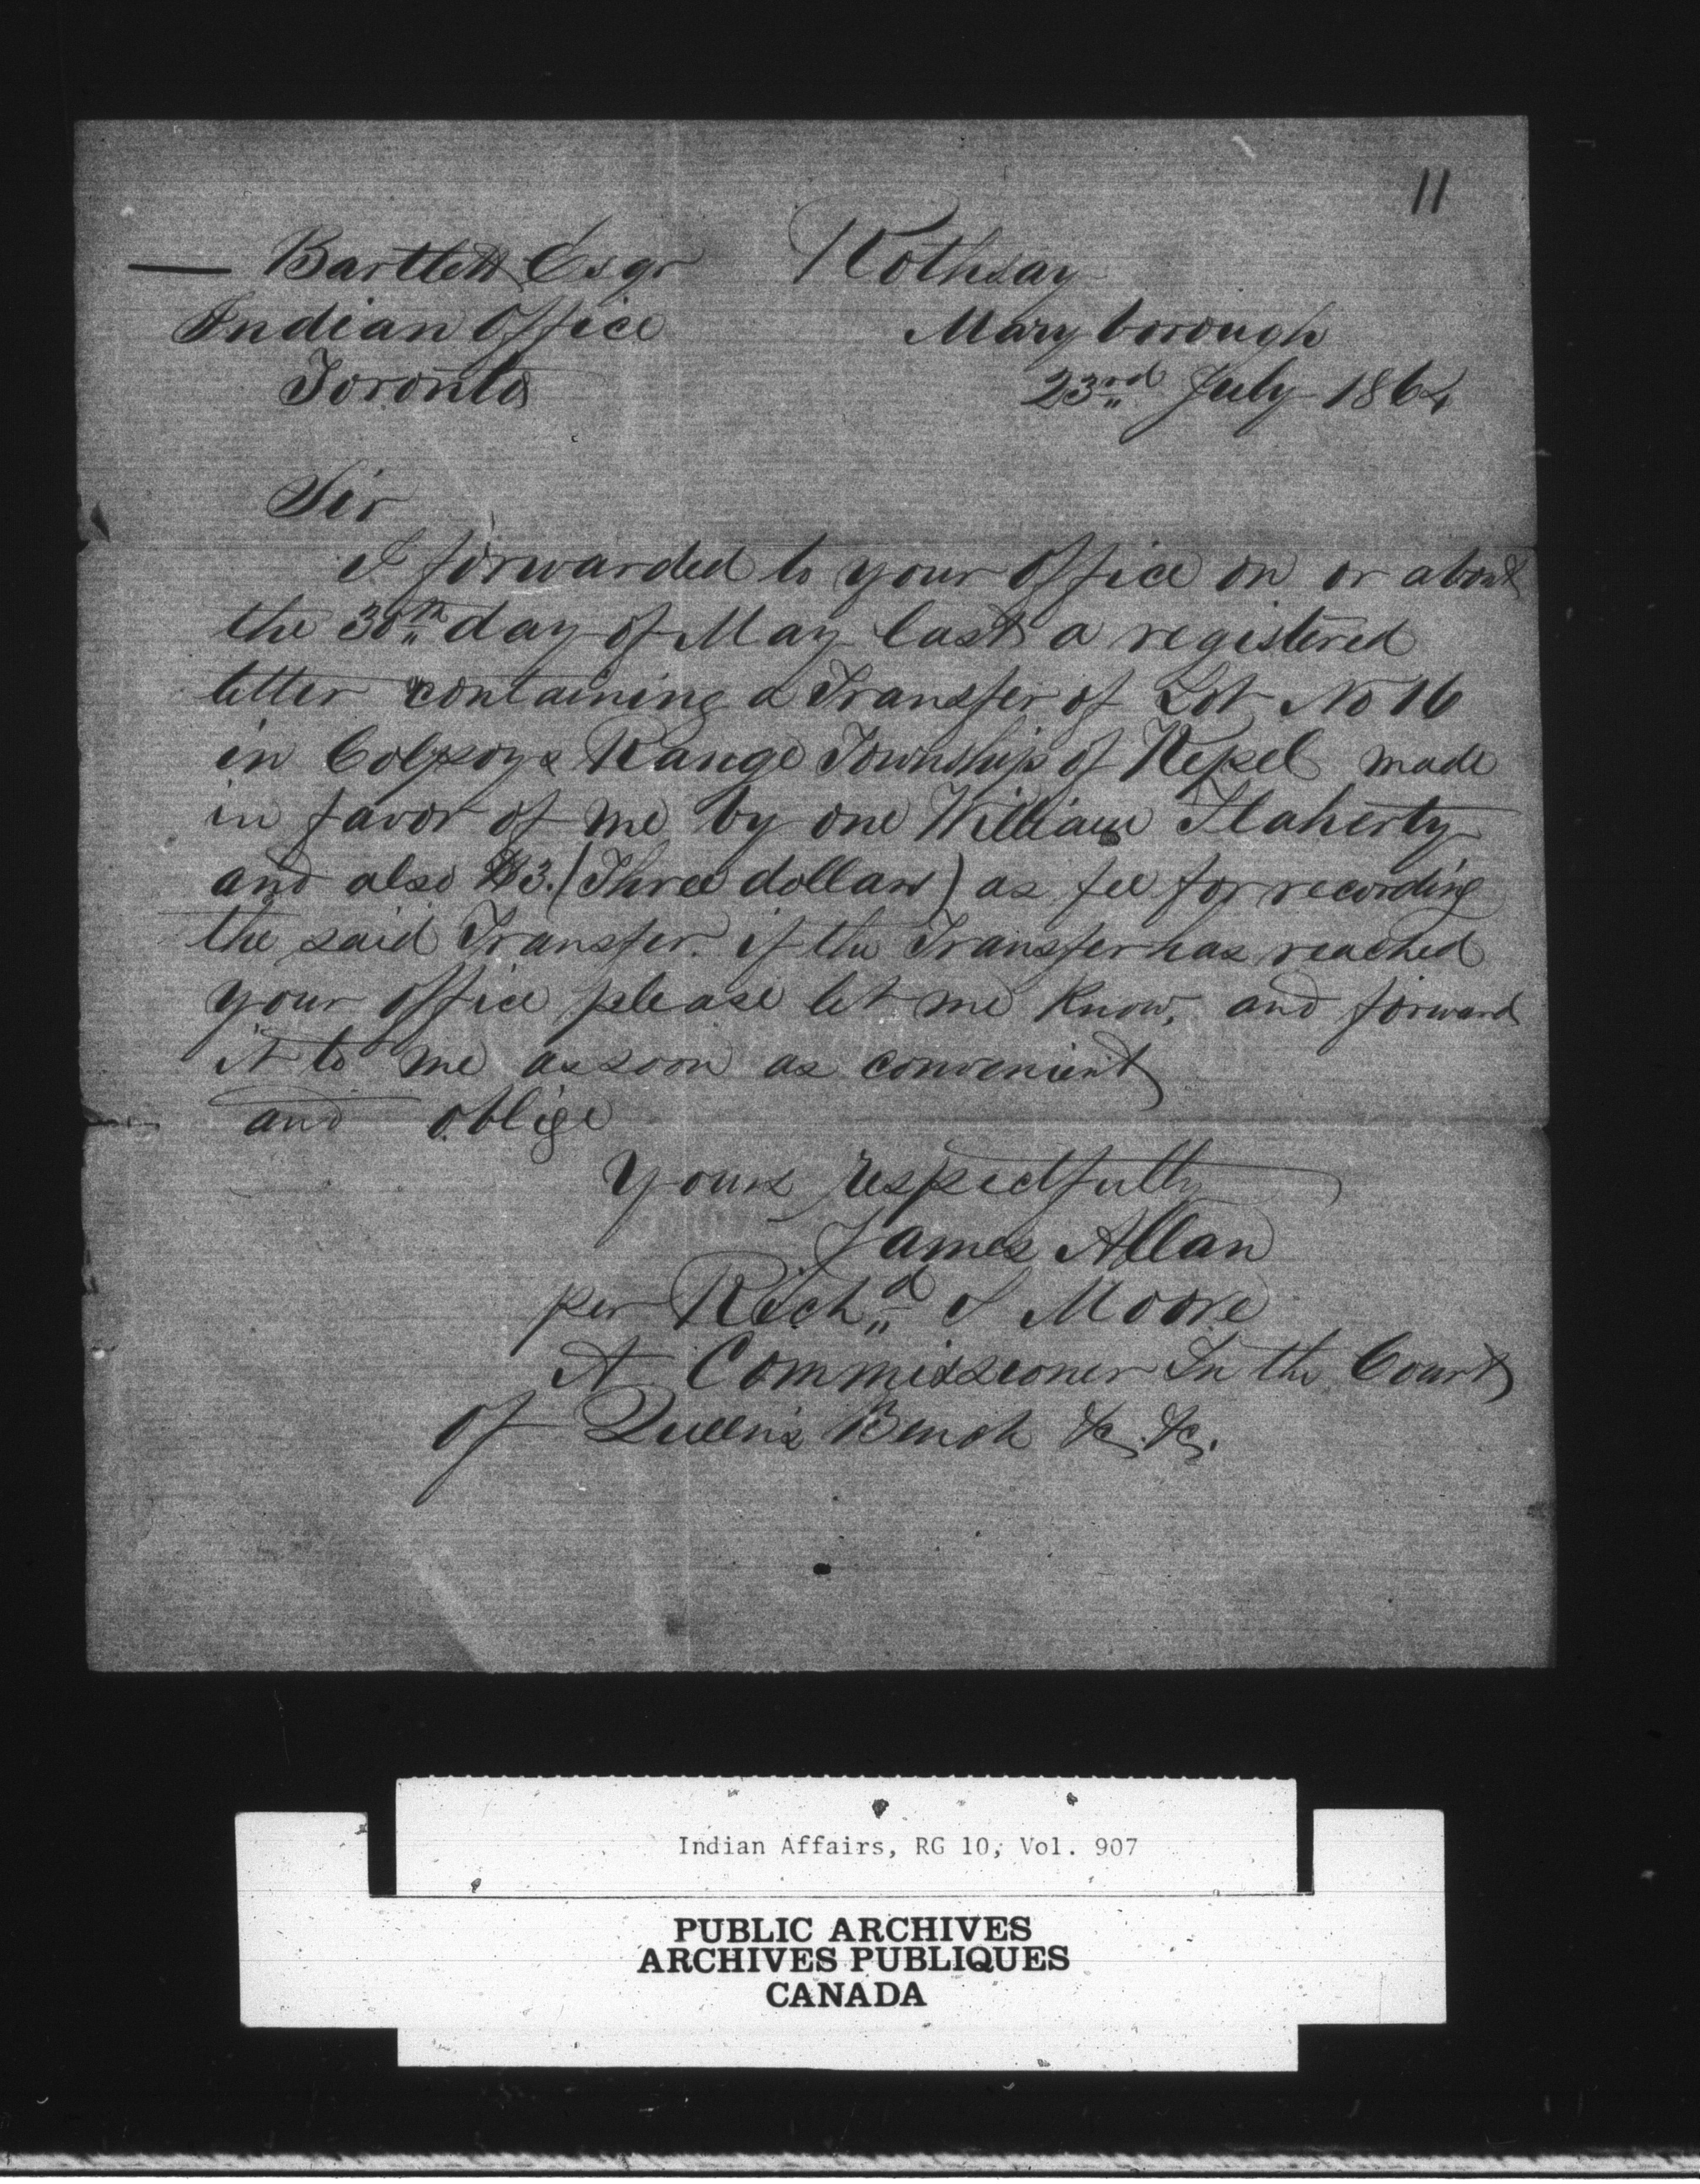 11
— Bartlett Esqr
Indian Office
Toronto
Rothsay
Maryborough
23rd July 1864
Sir
I forwarded to your Office on or about
the 30th day of May last a registered
letter containing a Transfer of Lot No 16
in Colpoys Range Township of Kepel made
in favor of me by one William Flaherty
and also $3. (Three dollars) as fee for recording
the said Transfer. if the Transfer has reached
your office please let me know, and forward
it to me as soon as convenient
and oblige
Yours respectfully
James Allan
per Richd S Moore
A Commissioner In the Court
of Queen's Bench &c. &c.
Indian Affairs, RG 10, Vol. 907
PUBLIC ARCHIVES
ARCHIVES PUBLIQUES
CANADA